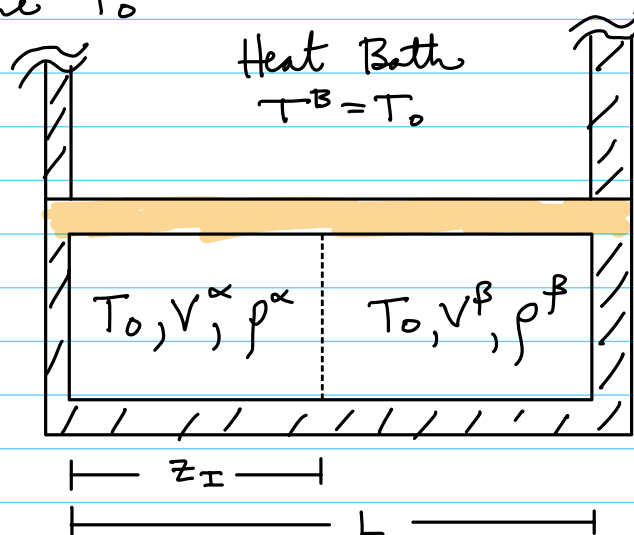 T₀
Heat Bath
Tᴮ = T₀
T₀, V^α, ρ^α
T₀, V^β, ρ^β
z_I
L